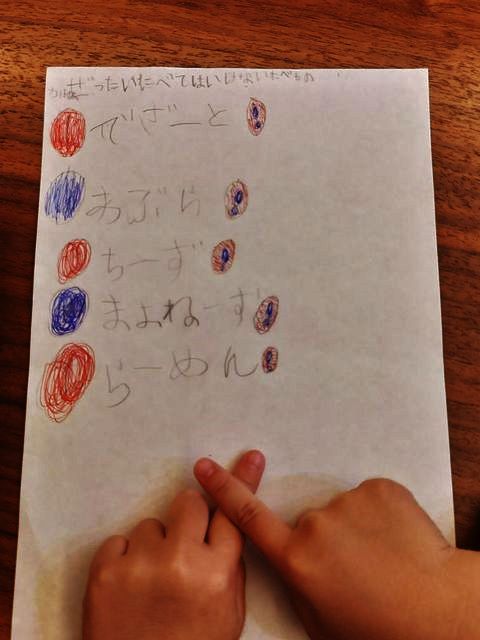 ぜったいたべてはいけないたべもの
でざーと
あぶら
ちーず
まよねーず
らーめん